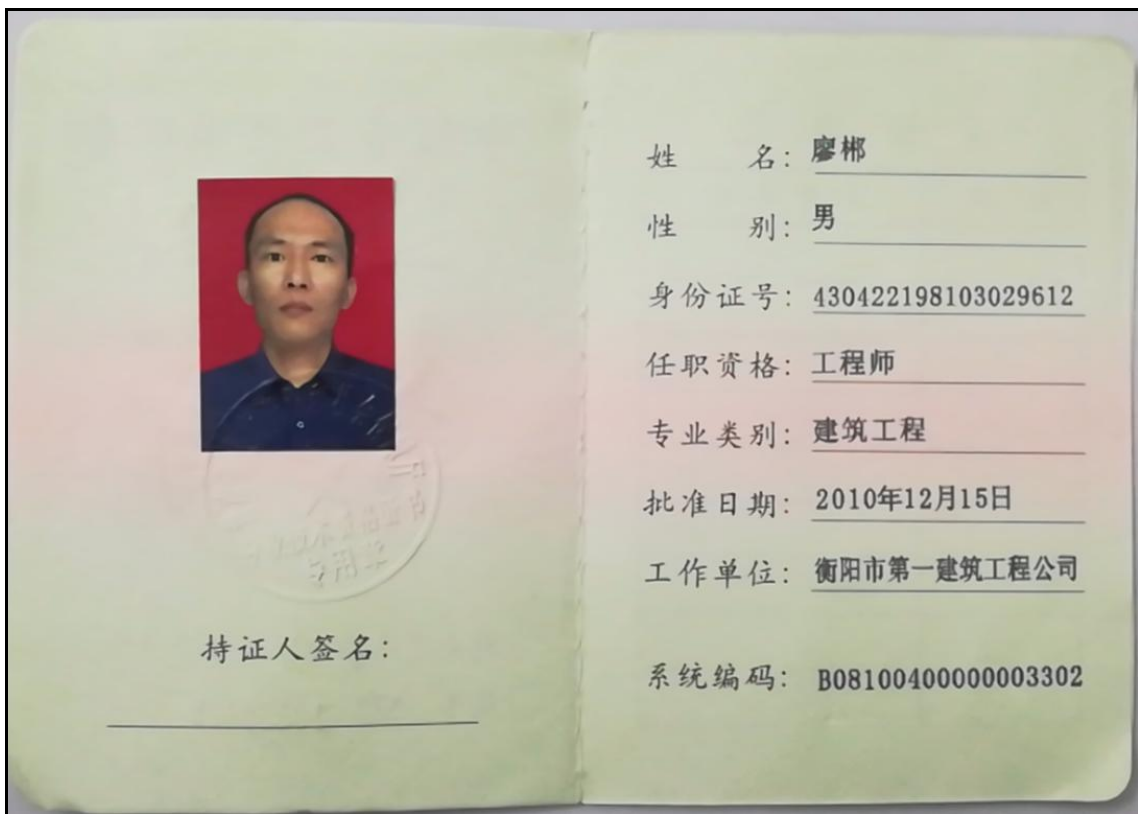 持证人签名：
姓 名：廖郴
性 别：男
身份证号：430422198103029612
任职资格：工程师
专业类别：建筑工程
批准日期：2010年12月15日
工作单位：衡阳市第一建筑工程公司
系统编码：B08100400000003302